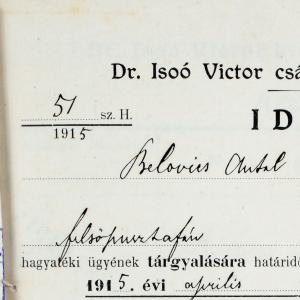 Dr. Isoó Victor csá
51 sz. H.
1915
ID
Belovics Antal
felsőpusztafán
hagyatéki ügyének tárgyalására határidő
1915. évi április